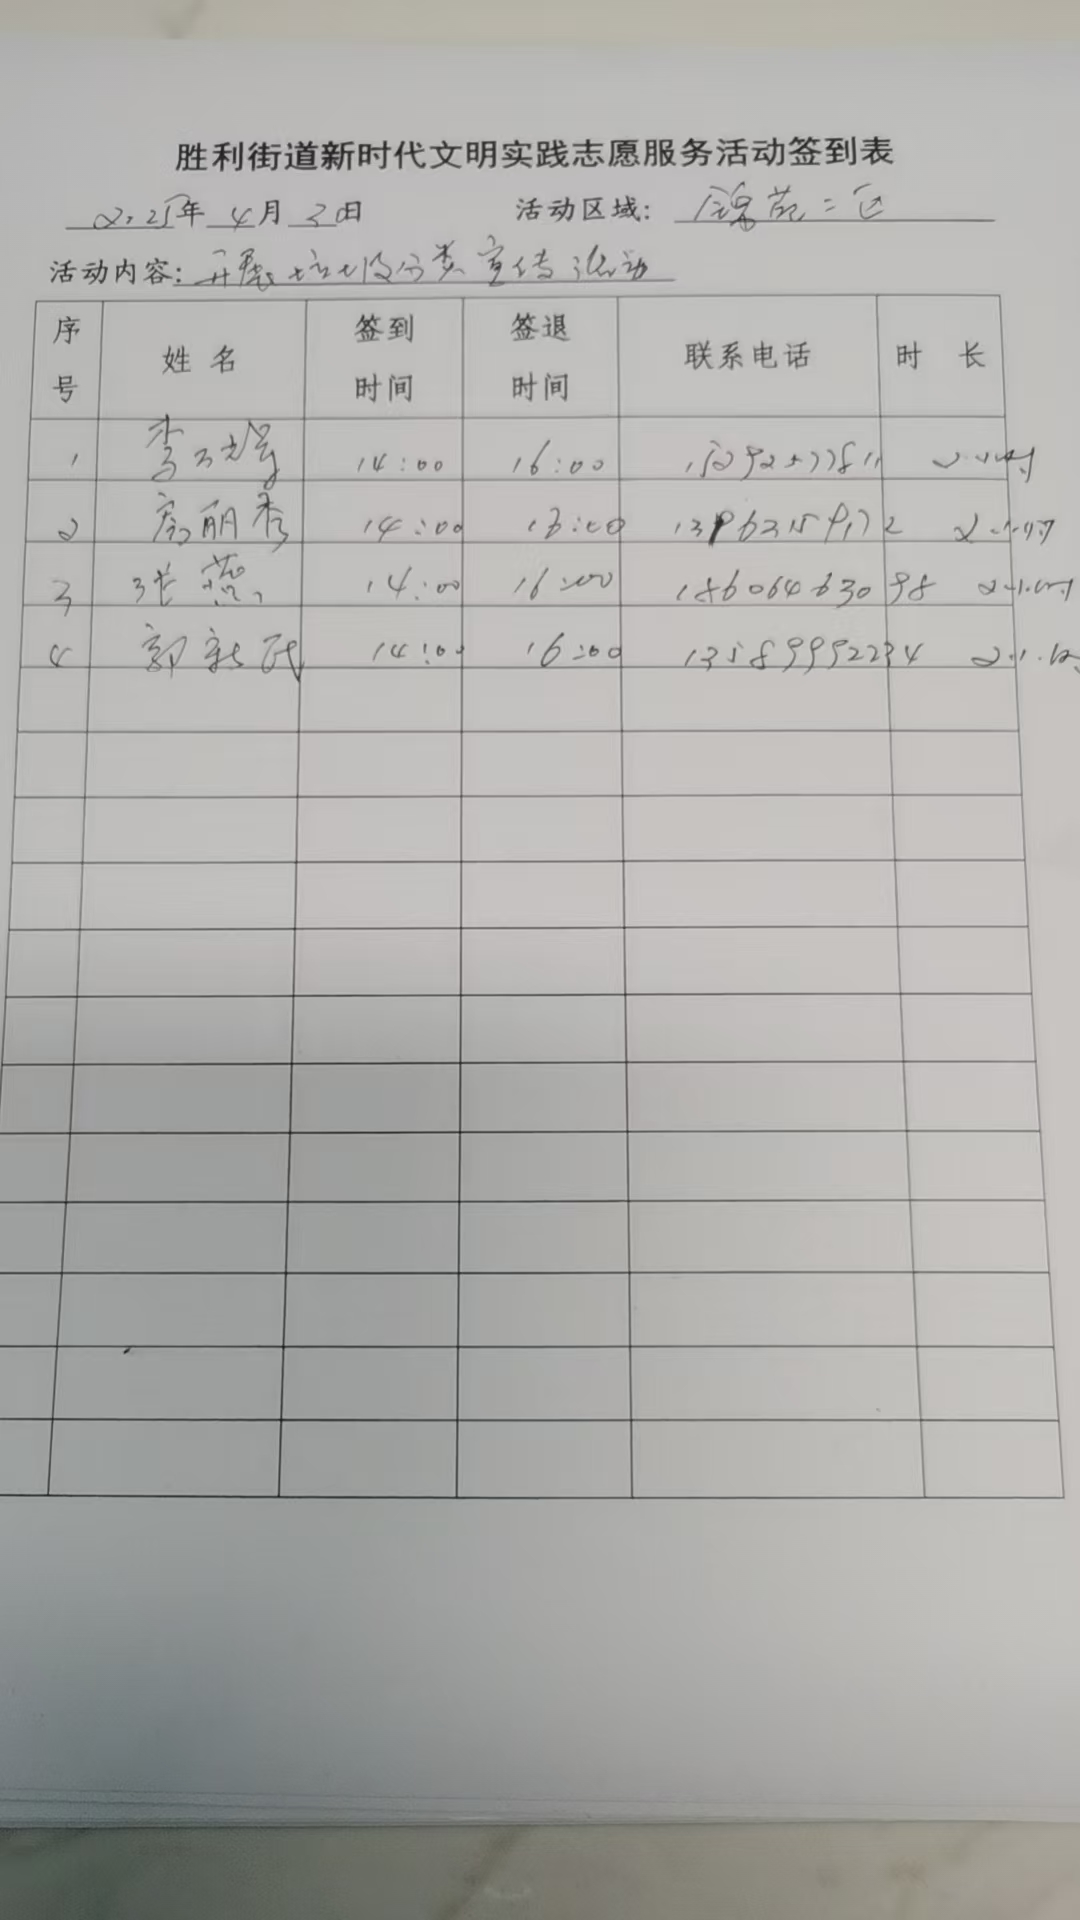 胜利街道新时代文明实践志愿服务活动签到表
2025年 4月 3日 活动区域: 锦苑二区
活动内容: 开展垃圾分类宣传活动
序号 姓名 签到时间 签退时间 联系电话 时长
1 李 14:00 16:00 2小时
2 房丽秀 14:00 16:00 2小时
3 张燕 14:00 16:00 18606463098 2小时
4 郭新民 14:00 16:00 13589992234 2小时